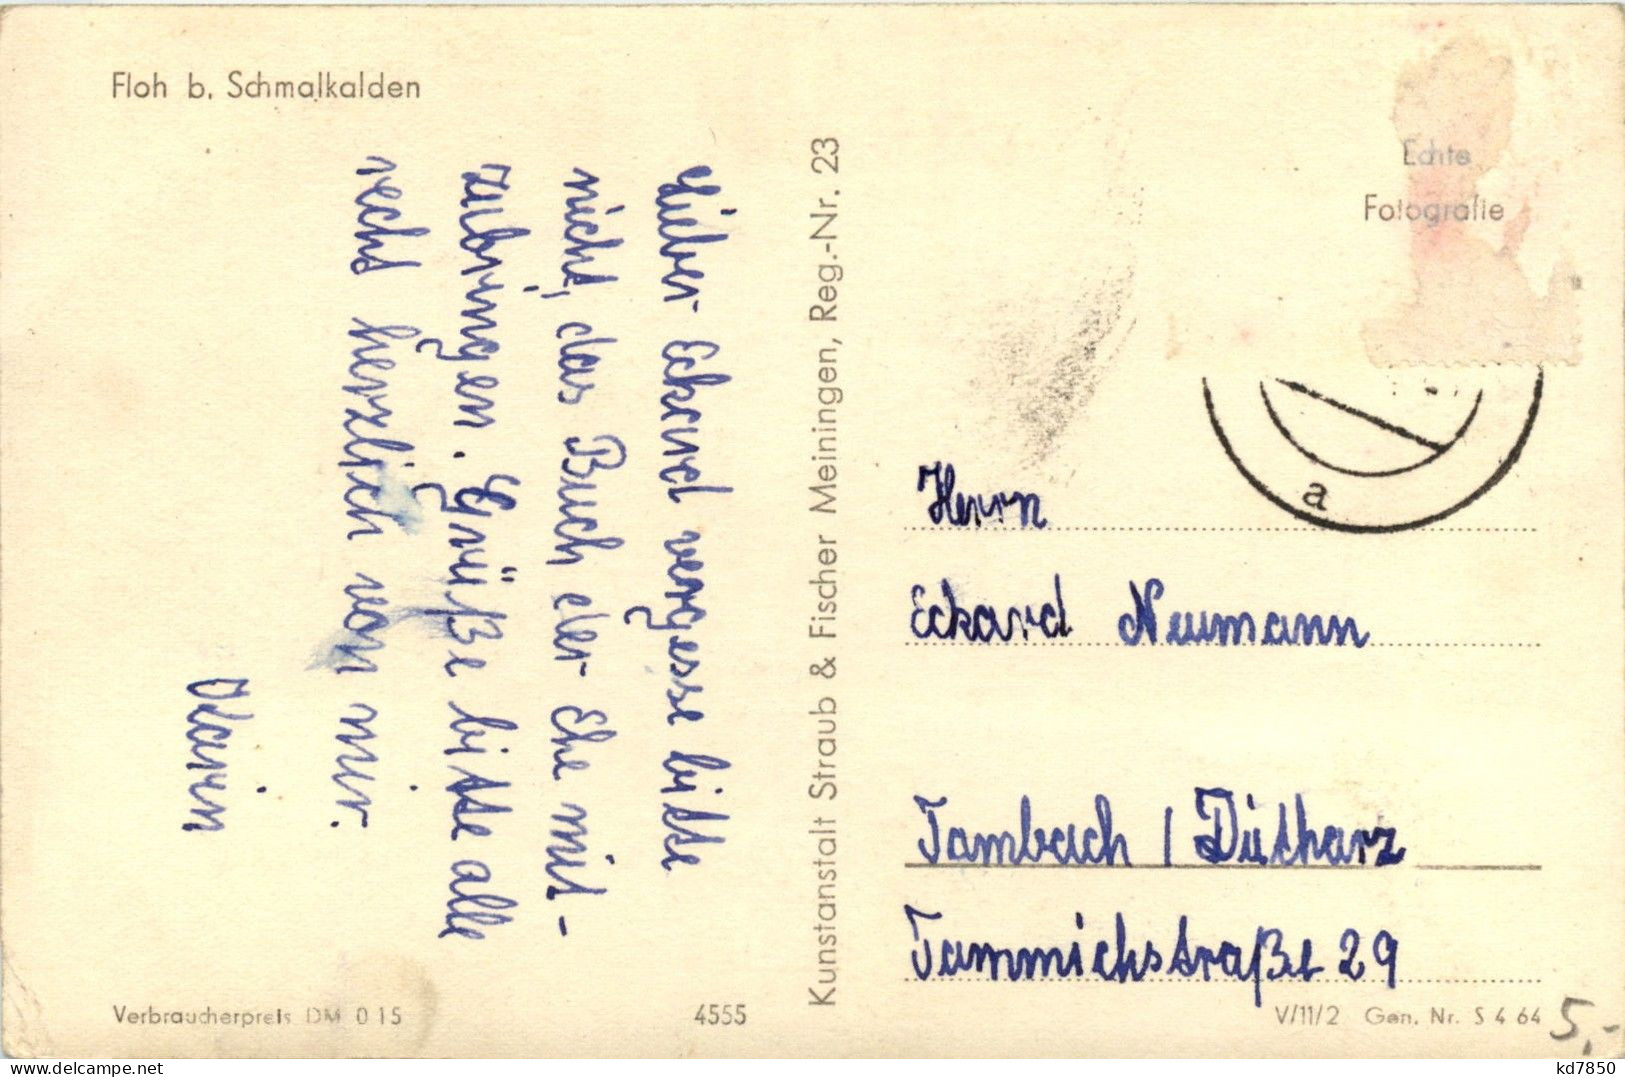 Floh b. Schmalkalden
Lieber Eckard vergesse bitte
nicht, das Buch der Ehe mit-
zubringen. Grüße bitte alle
recht herzlich von mir.
Karin
Kunstanstalt Straub & Fischer Meiningen, Reg.-Nr. 23
Echte
Fotografie
a
Herrn
Eckard Neumann
Tambach / Dietharz
Tammichstraße 29
Verbraucherpreis DM 0 15
4555
V/11/2 Gen. Nr. S 4 64
5,-
kd7850